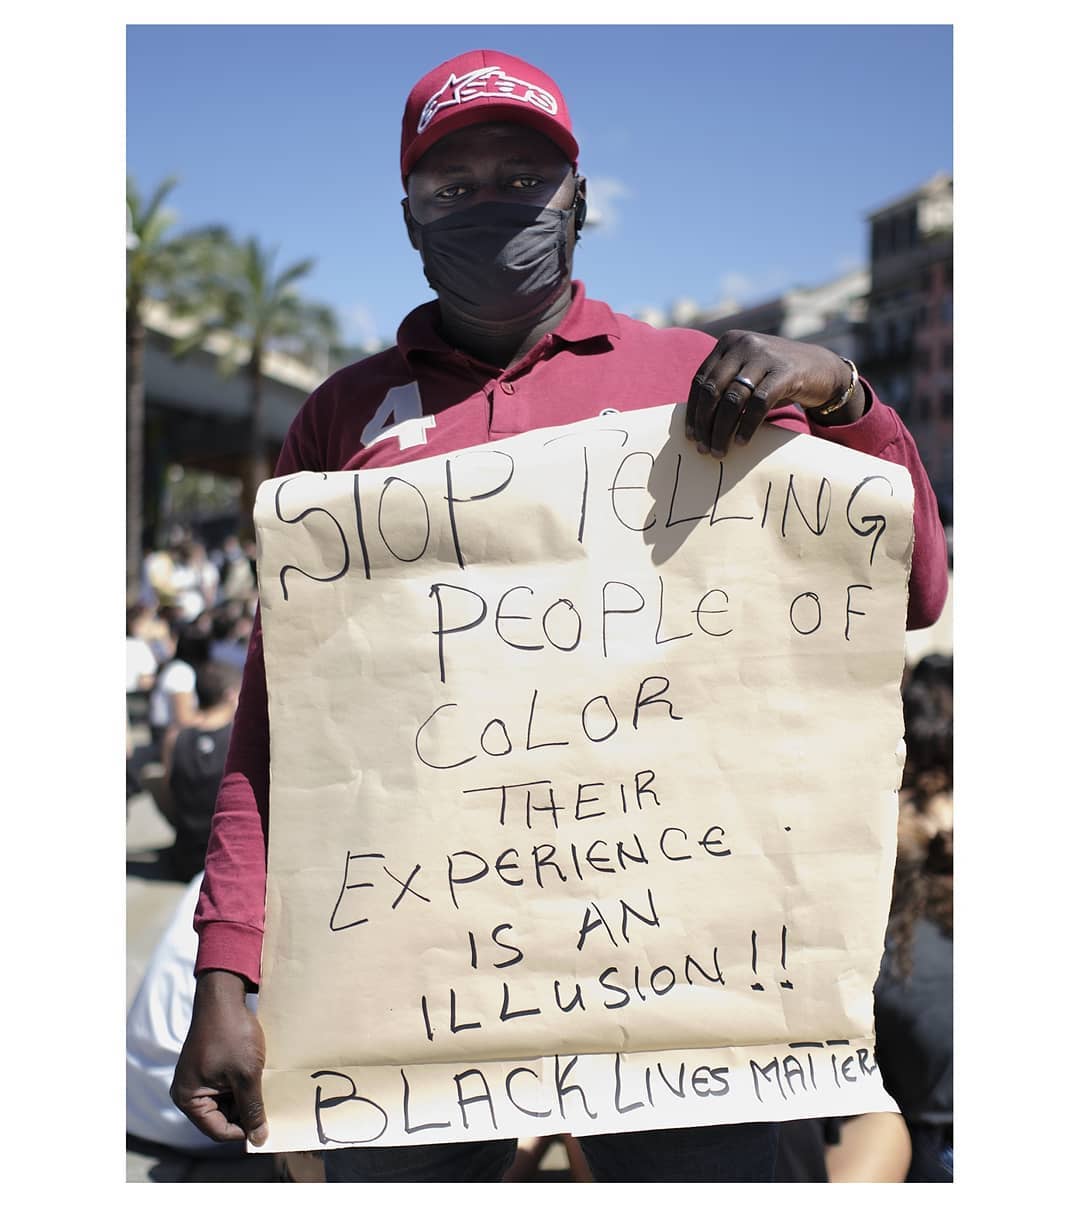 alpinestars
4
STOP TELLING
PEOPLE OF
COLOR
THEIR
EXPERIENCE
IS AN
ILLUSION!!
BLACK LIVES MATTER